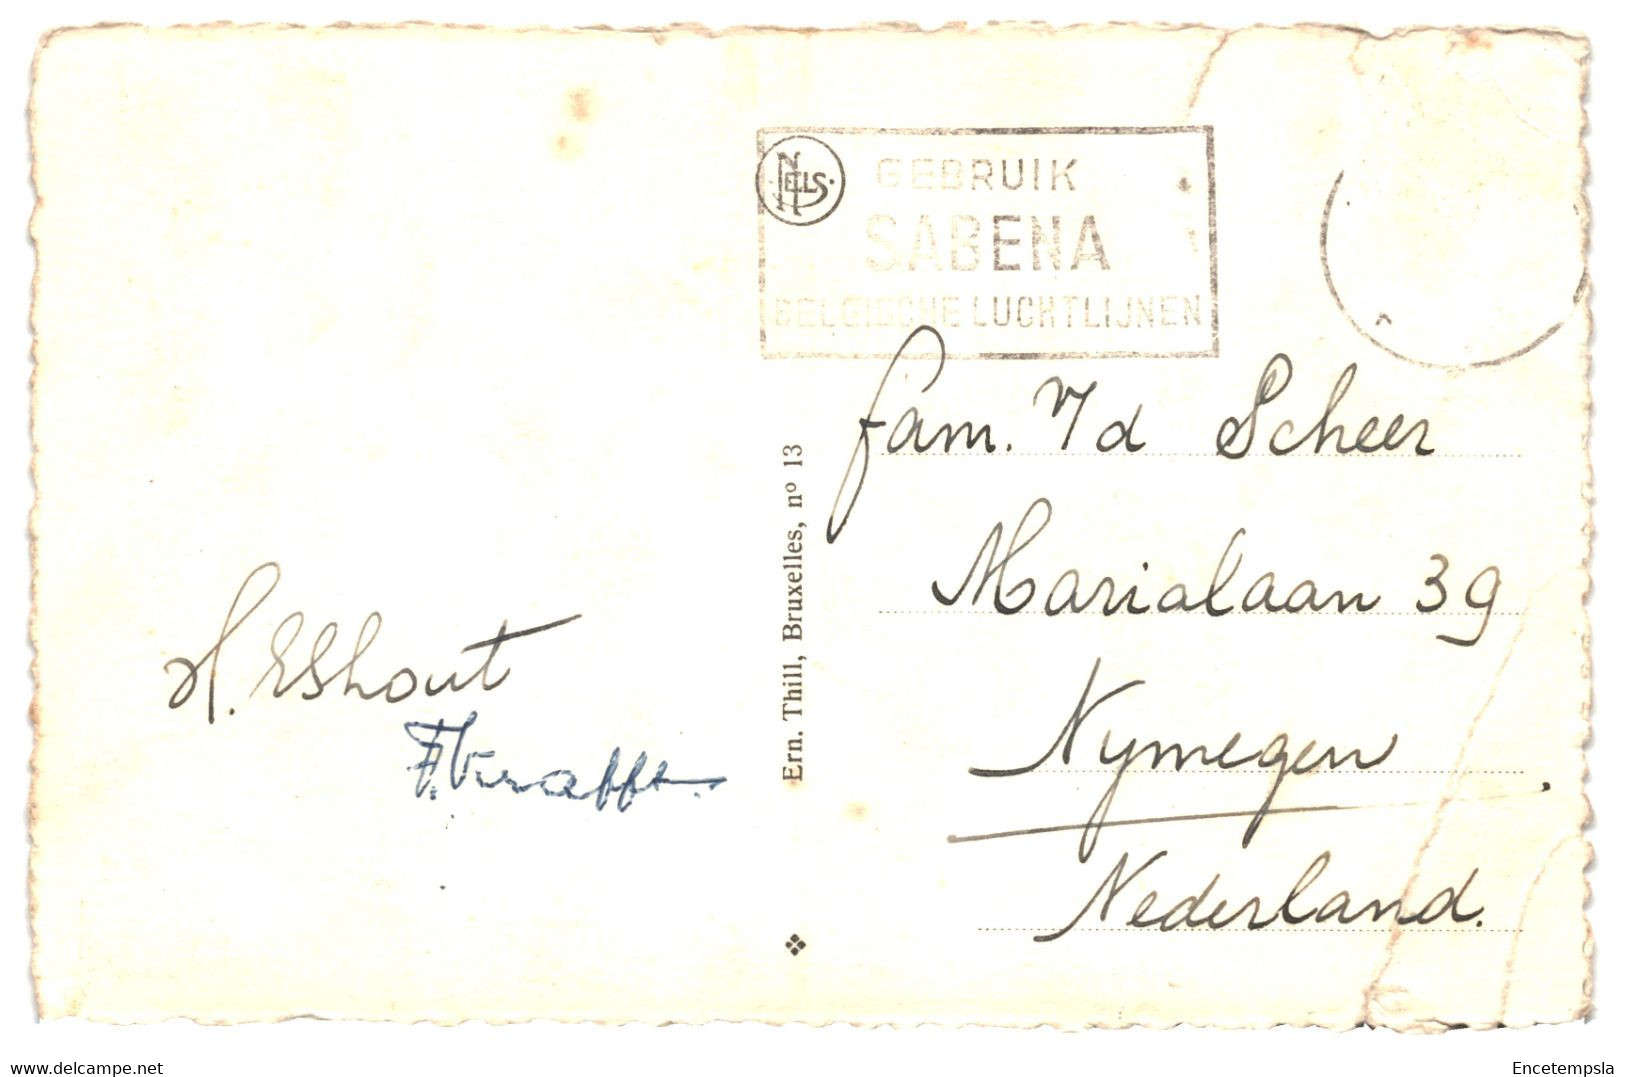 NELS
GEBRUIK
SABENA
BELGISCHE LUCHTLIJNEN
fam. v/d Scheer
Marialaan 39
Nymegen
Nederland.
H. Eshout
Ern. Thill, Bruxelles, nº 13
www.delcampe.net
Encetempsla